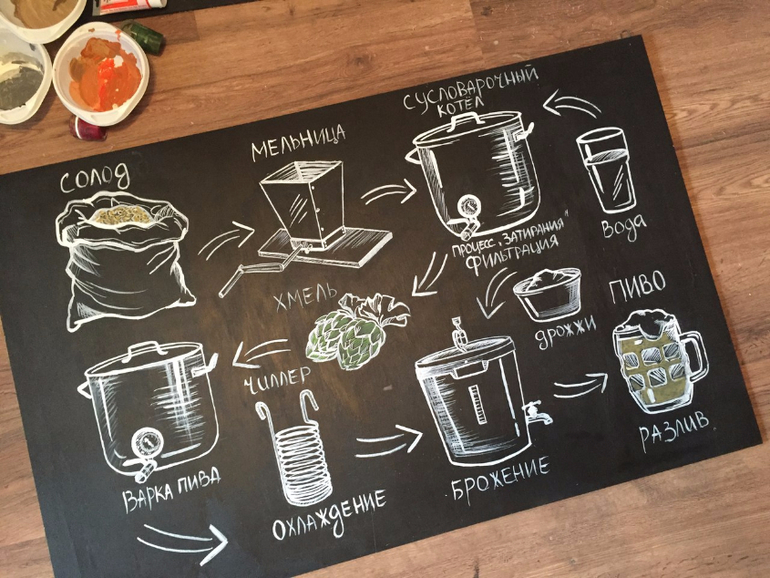 СОЛОД
МЕЛЬНИЦА
СУСЛОВАРОЧНЫЙ
КОТЕЛ
ВОДА
ПРОЦЕСС „ЗАТИРАНИЯ"
ФИЛЬТРАЦИЯ
ХМЕЛЬ
ДРОЖЖИ
ПИВО
ЧИЛЛЕР
ВАРКА ПИВА
ОХЛАЖДЕНИЕ
БРОЖЕНИЕ
РАЗЛИВ